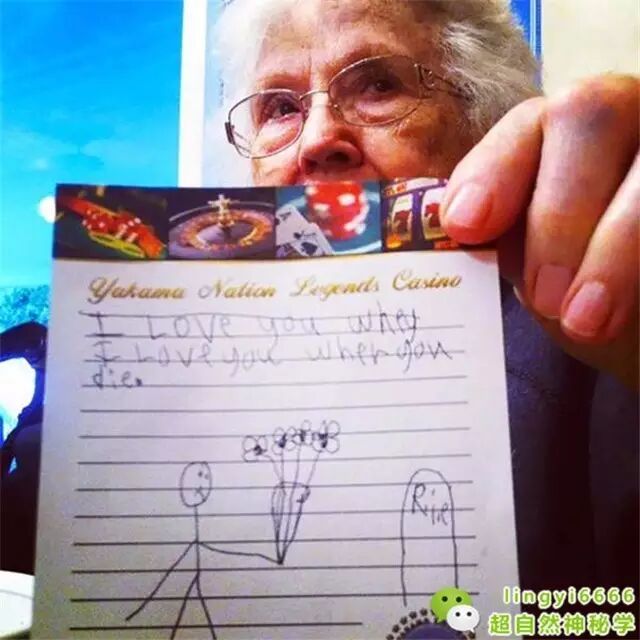 Yakama Nation Legends Casino
I Love you when
I Love you when you
die.
Rip
lingyi6666
超自然神秘学